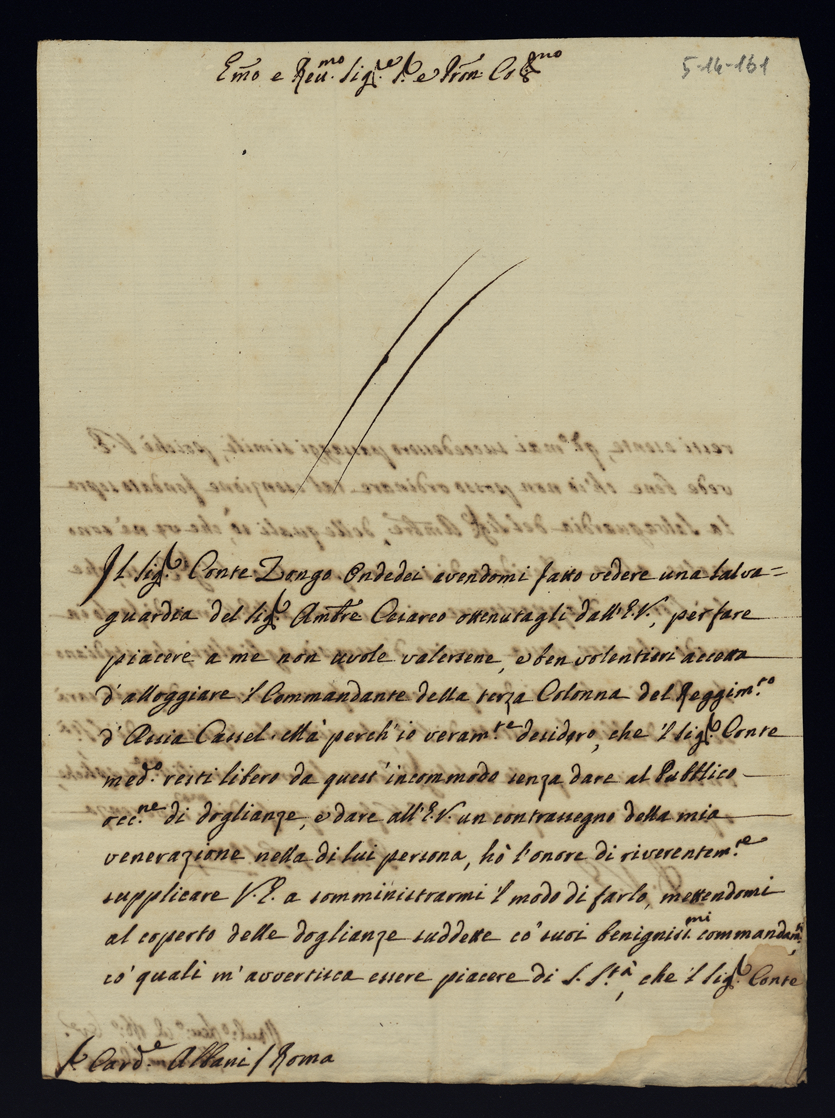 Emo e Reumo. Sigr.e P. e Pron. Colmo
5-14-161
Il Sigr. Conte Zongo Ondedei avendomi fatto vedere una Salva=
guardia del Sigr. Ambre Cesareo ottenutagli dall'E.V., per fare
piacere a me non vuole valersene, e ben volentieri accetta
d'alloggiare 'l Commandante della terza Colonna del Reggimto
d'Assia Cassel. Mà perch'io veramte desidero, che 'l Sigr. Conte
medo. resti libero da quest'incommodo senza dare al Pubblico
occne di doglianze, e dare all'E.V. un contrassegno della mia
venerazione nella di lui persona, hò l'onore di riverentemte
supplicare V.E. a somministrarmi 'l modo di farlo, mettendomi
al coperto delle doglianze suddette co' suoi benignissmi commandamti,
co' quali m'avvertisca essere piacere di S. Stà, che 'l Sigr. Conte
Sr. Carde. Albani / Roma